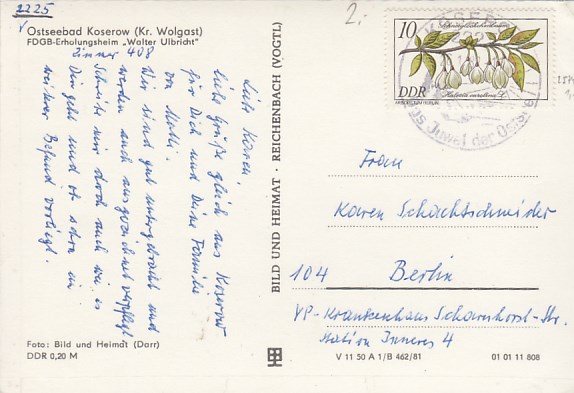 2225
V
2.-
Ostseebad Koserow (Kr. Wolgast)
FDGB-Erholungsheim „Walter Ulbricht"
Zimmer 408
Liebe Karen,
liebe Grüße gleich aus Koserow
für Dich und Deine Familie
von Mutti.
Wir sind gut untergebracht und
werden auch ausgezeichnet verpflegt
Schreibe mir doch auch wie es
Dir geht und ob schon ein
weiterer Befund vorliegt.
Foto: Bild und Heimat (Darr)
DDR 0,20 M
BILD UND HEIMAT · REICHENBACH (VOGTL)
10
DDR
Halesia carolina L.
Juwel der Ostsee
Frau
Karen Schachtschneider
104 Berlin
VP-Krankenhaus Scharnhorst-Str.
Station Inneres 4
V 11 50 A 1/B 462/81
01 01 11 808